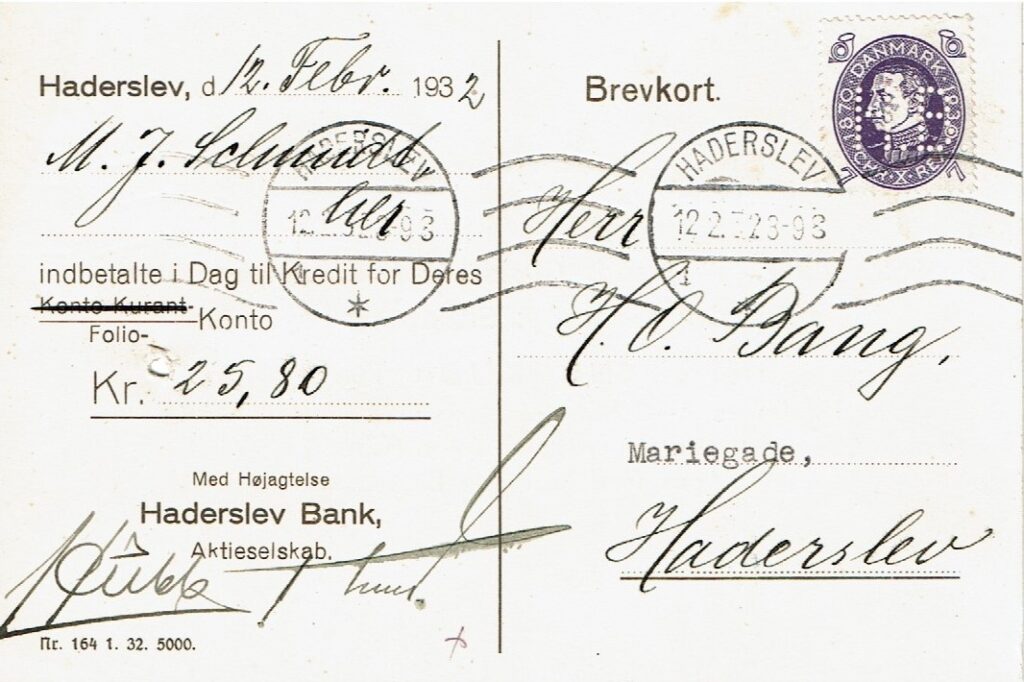 Haderslev, d 12. Febr. 1932
M. J. Schmidt
her
indbetalte i Dag til Kredit for Deres
Konto Kurant
Folio- Konto
Kr. 25,80
Med Højagtelse
Haderslev Bank,
Aktieselskab.
Nr. 164 1. 32. 5000.
Brevkort.
DANMARK
1870 1930
C X R
7 7
HADERSLEV
12.2.32 8-9 8
1
HADERSLEV
12.2.32 8-9 8
1
Herr
H. O. Bang,
Mariegade,
Haderslev